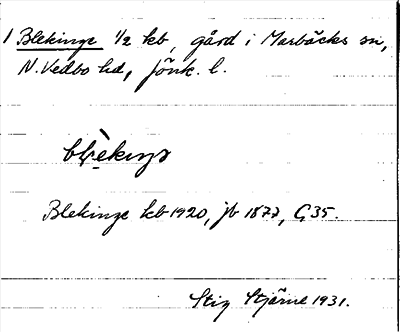 1 Blekinge 1/2 kb, gård i Marbäcks sn,
N. Vedbo hd, Jönk. l.
Blekinge kb 1920, jb 1877, G 35.
Stig Stjärne 1931.